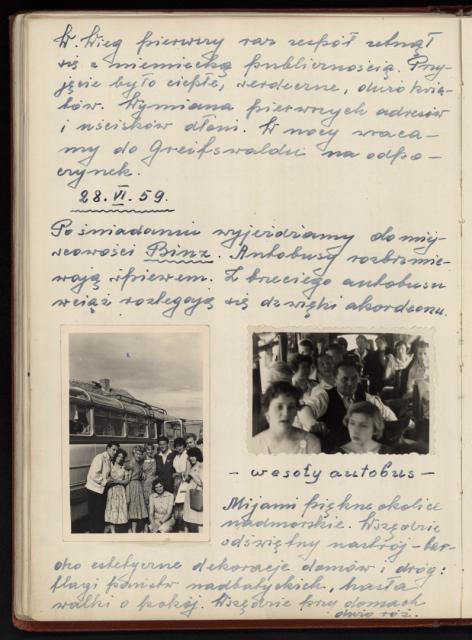 W. Wieg pierwszy raz zespół zetnął
się z niemiecką publicznością. Przy-
jęcie było ciepłe, serdeczne, dużo kwia-
tów. Wymiana pierwszych adresów
i uścisków dłoni. W nocy wraca-
my do Greifswaldu na odpo-
czynek.
28.VI.59.
Po śniadaniu wyjeżdżamy do miej-
scowości Binz. Autobusy rozbrzmie-
wają śpiewem. Z trzeciego autobusu
wciąż rozlegają się dźwięki akordeonu.
- wesoły autobus -
Mijamy piękne okolice
nadmorskie. Wszędzie
odświętny nastrój - bar-
dzo estetyczne dekoracje domów i dróg:
flagi państw nadbałtyckich, hasła
walki o pokój. Wszędzie przy domach
dużo róż.